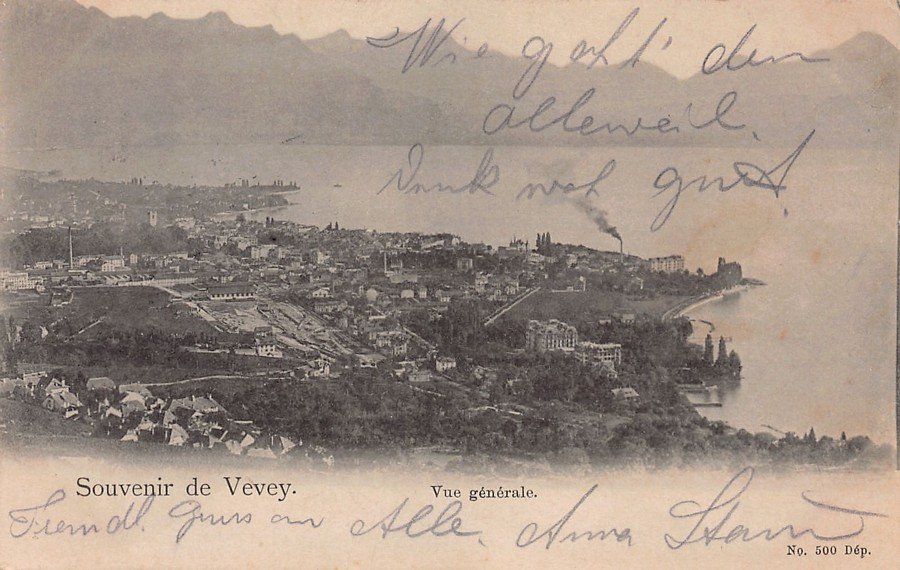 Wie geht's den
alleweil.
Dunk mol gut,
Souvenir de Vevey.
Vue générale.
Freundl. Gruss an Alle. Anna
No. 500 Dép.